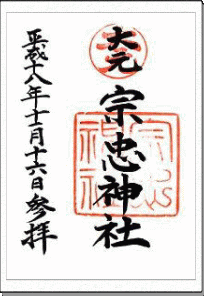 大元
宗忠神社
平成十八年十一月十六日参拝
宗忠
神社